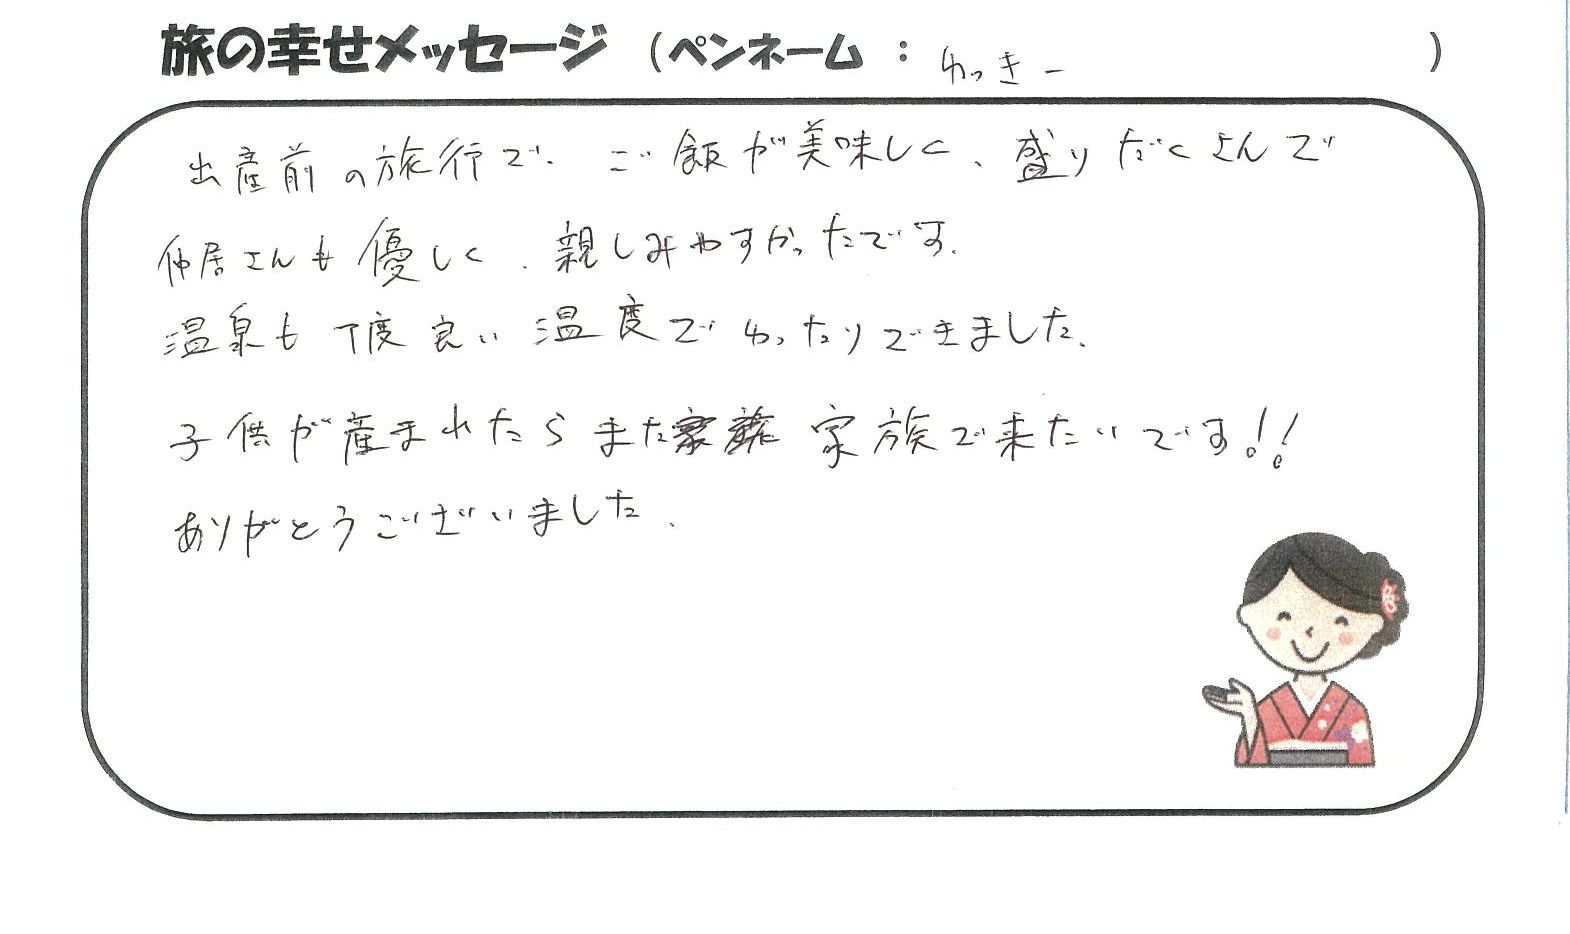 旅の幸せメッセージ （ペンネーム ： ゆっきー ）
出産前の旅行で、ご飯が美味しく、盛りだくさんで
仲居さんも優しく、親しみやすかったです。
温泉も丁度良い温度でゆったりできました。
子供が産まれたらまた家族で来たいです!!
ありがとうございました。